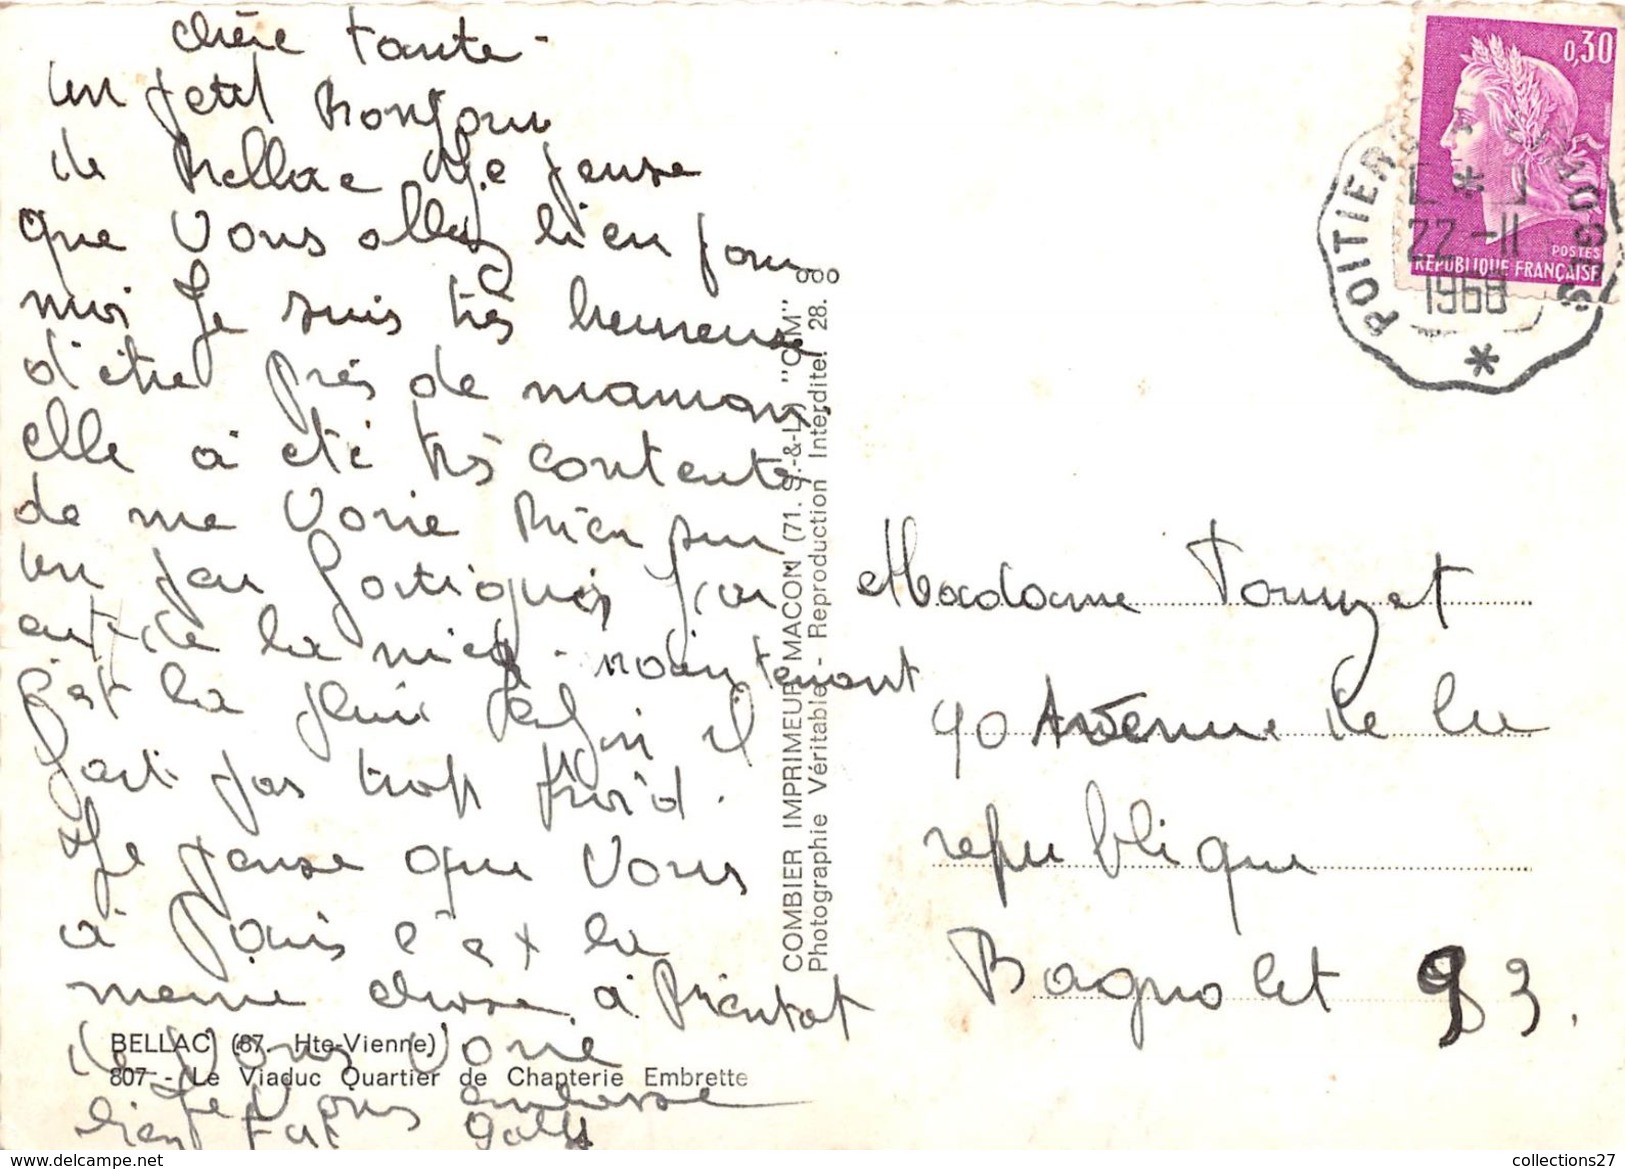 chère tante -
un petit Bonjour
de Bellac Je pense
que Vous allez bien pour
moi Je suis très heureuse
d'être près de maman,
elle a été très contente
de me Voire Bien sur
un peu fatiguée
de la maintenant
c'est la pluie enfin il
fait pas trop froid.
Je pense que Vous
à Paris c'est la
meme chose. à Bientot
de Vous Voire
Je Vous embrasse
bien fort
BELLAC (87. Hte-Vienne)
807 - Le Viaduc Quartier de Chapterie Embrette
COMBIER IMPRIMEUR MACON (71. S.-&-L.) "CIM"
Photographie Véritable - Reproduction Interdite. 28.
0,30
POSTES
REPUBLIQUE FRANÇAISE
POITIERS LIMOGES
22 -11
1968
Madame Touzet
90 Avenue de la
republique
Bagnolet 93.
collections27